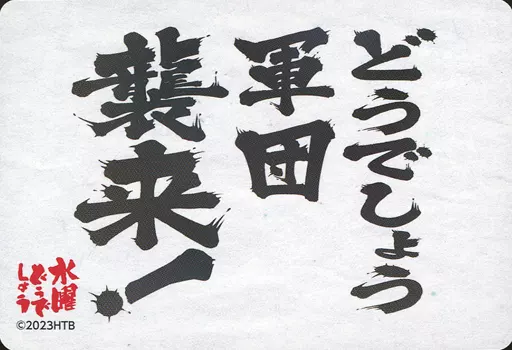 どうでしょう
軍団
襲来!
水曜
どうで
しょう
©2023HTB